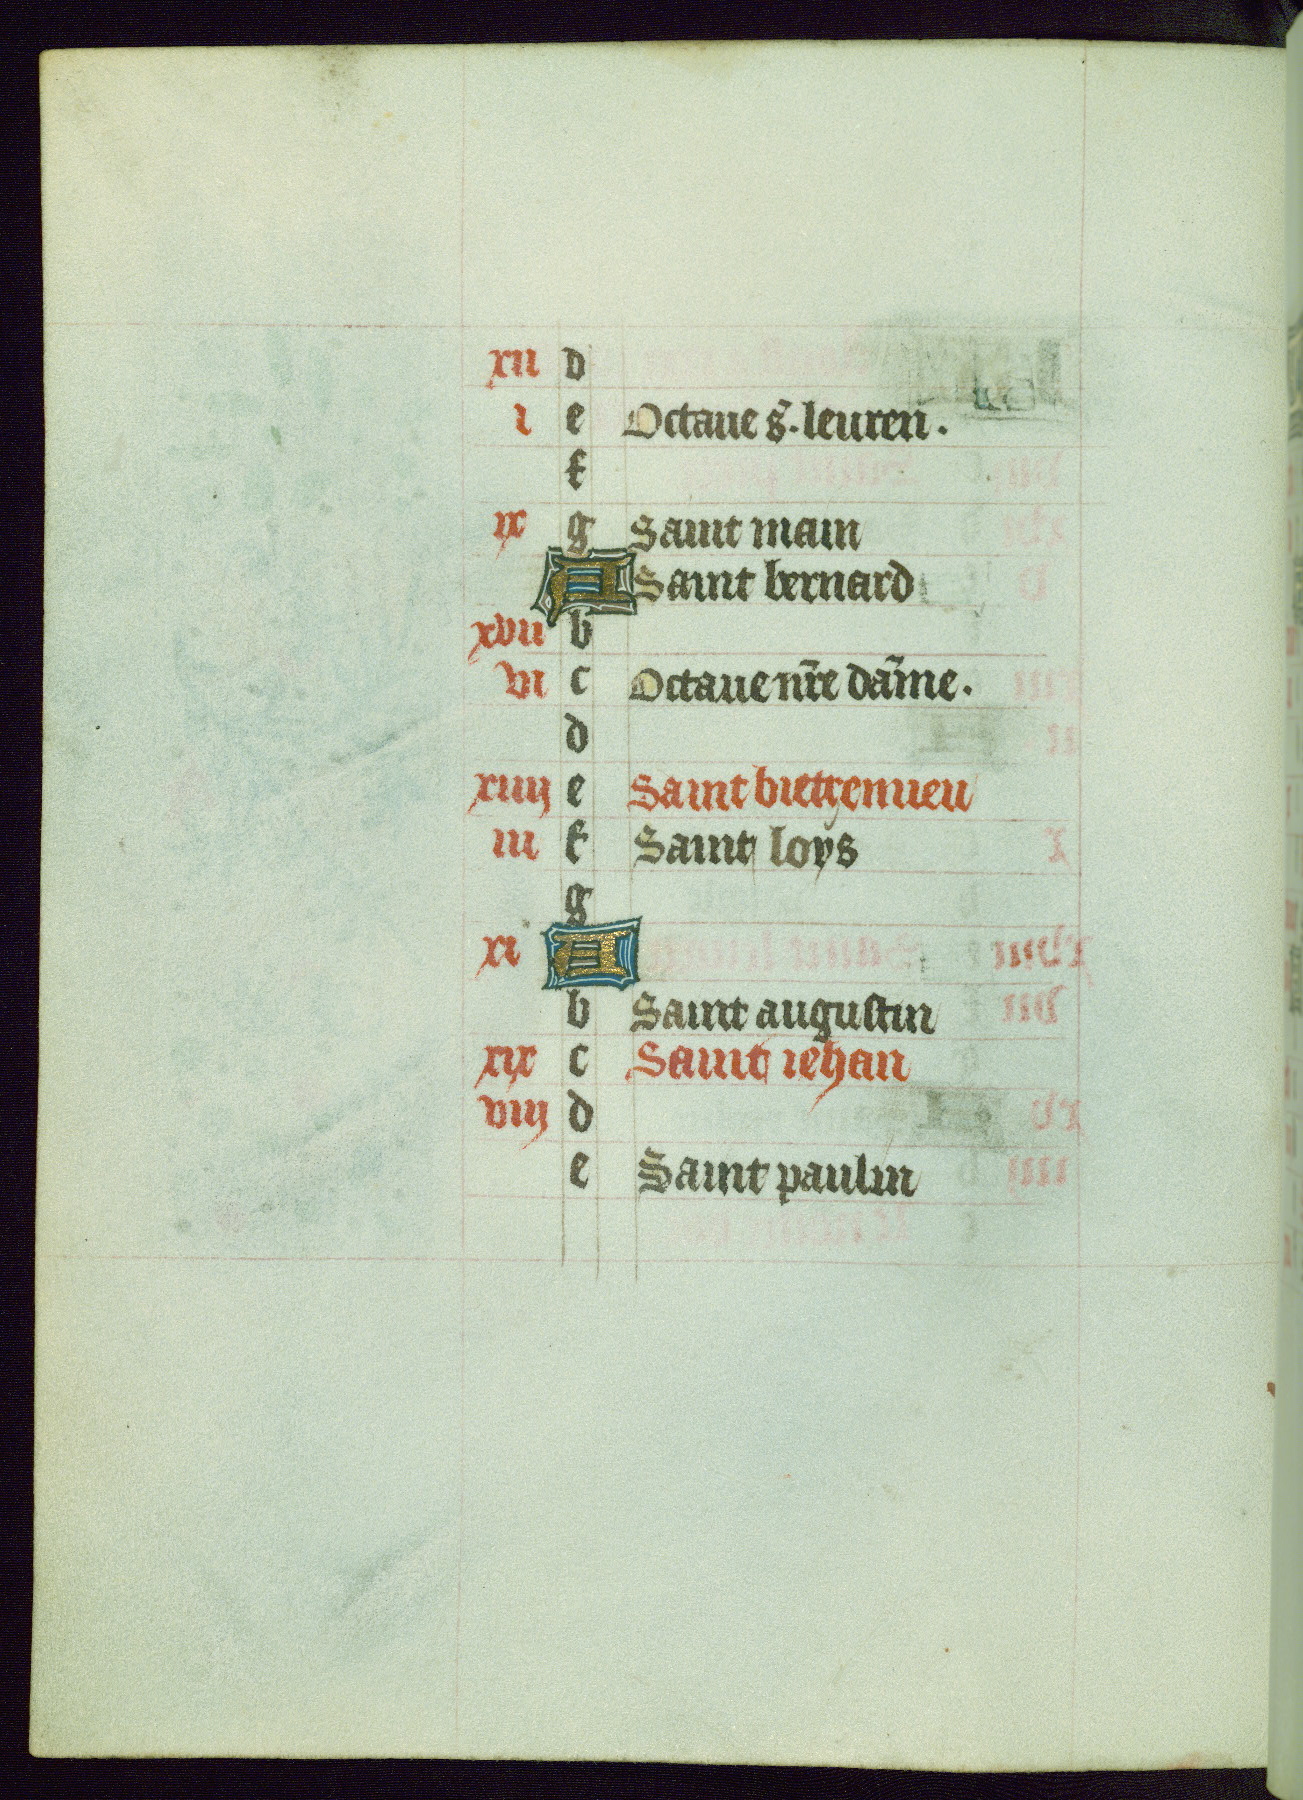 xii d
i e Octaue s̃. leuren.
f
ix g Saint main
A Saint bernard
xvii b
vi c Octaue nr̃e dãme.
d
xiiij e Saint bietremieu
iii f Saint loys
g
xi A
b Saint augustin
xix c Saint iehan
viij d
e Saint paulin